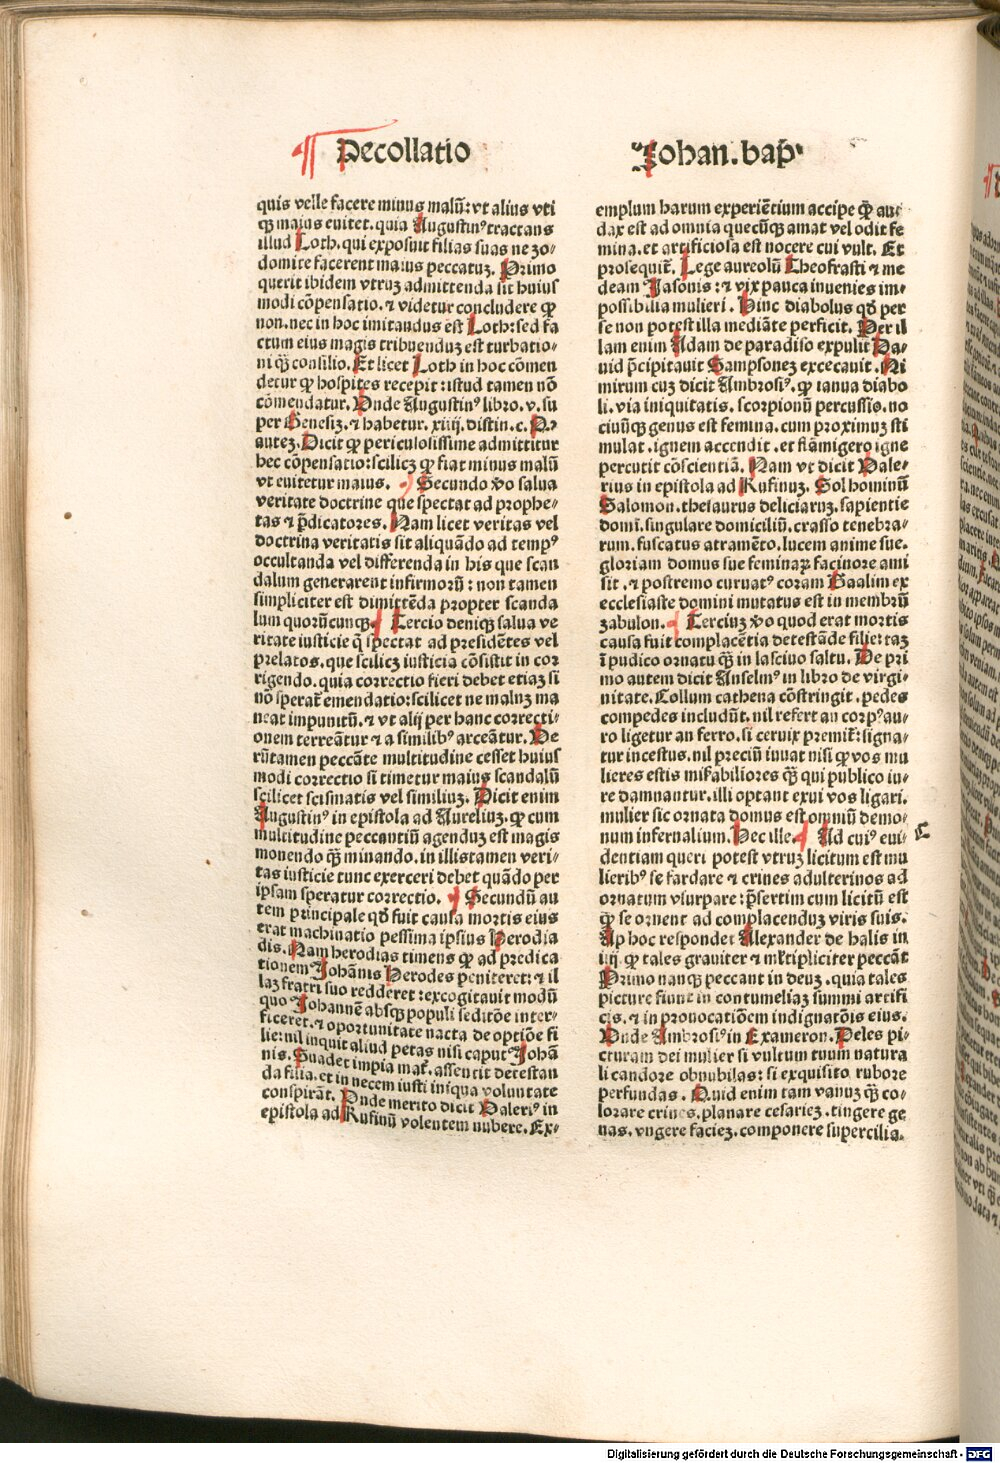 Decollatio
Johan. bap̄.
quis velle facere minus malū: vt alius vti
qꝫ maius euitet. quia Augustinꝰ tractans
illud Loth. qui exposuit filias suas ne zo-
domite facerent maius peccatuꝫ. Primo
querit ibidem vtruꝫ admittenda sit huius
modi cōpensatio. ⁊ videtur concludere ꝙ
non. nec in hoc imitandus est Loth: sed fa
ctum eius magis tribuenduꝫ est turbatio-
ni qꝫ̄ consilio. Et licet Loth in hoc cōmen
detur ꝙ hospites recepit: istud tamen nō
cōmendatur. Vnde Augustinꝰ libro. v. su
per Genesiꝫ. ⁊ habetur. xiiij. distin. c. Q2
auteꝫ. Dicit ꝙ periculosissime admittitur
hec cōpensatio: scilicꝫ ꝙ fiat minus malū
vt euitetur maius. Secundo ꝟo salua
veritate doctrine que spectat ad prophe-
tas ⁊ p̄dicatores. Nam licet veritas vel
doctrina veritatis sit aliquādo ad tempꝰ
occultanda vel differenda in his que scan
dalum generarent infirmorū: non tamen
simpliciter est dimittēda propter scanda
lum quorūcunqꝫ. Tercio deniqꝫ salua ve
ritate iusticie q̄ spectat ad presidētes vel
prelatos. que scilicꝫ iusticia cōsistit in cor
rigendo. quia correctio fieri debet etiaꝫ si
nō sperat̄ emendatio: scilicet ne maluꝫ ma
neat impunitū. ⁊ vt alij per hanc correcti-
onem terreātur ⁊ a similibꝰ arceātur. Ve
rūtamen peccāte multitudine cesset huius
modi correctio si timetur maius scandalū
scilicet scismatis vel similiuꝫ. Dicit enim
Augustinꝰ in epistola ad Aureliuꝫ. ꝙ cum
multitudine peccantiū agenduꝫ est magis
monendo qꝫ̄ minando. in illis tamen veri-
tas iusticie tunc exerceri debet quādo per
ipsam speratur correctio. Secundū au
tem principale qd̄ fuit causa mortis eius
erat machinatio pessima ipsius Herodia
dis. Nam herodias timens ꝙ ad predica
tionem Johānis Herodes peniteret: ⁊ il
laꝫ fratri suo redderet: excogitauit modū
quo Johannē absqꝫ populi seditōe inter-
ficeret. ⁊ oportunitate nacta de optiōe fi
lie: nil inquit aliud petas nisi caput Johā
nis. Suadet impia mat̄. assentit detestan
da filia. et in necem iusti iniqua voluntate
conspirāt. Vnde merito dicit Valeriꝰ in
epistola ad Rufinū volentem nubere. Ex-
emplum harum experiētium accipe qꝫ̄ au
dax est ad omnia quecūqꝫ amat vel odit fe
mina. et artificiosa est nocere cui vult. Et
prosequit̄. Lege aureolū Theofrasti ⁊ me
deam Jasonis: ⁊ vix pauca inuenies im-
possibilia mulieri. Hinc diabolus qd̄ per
se non potest illa mediāte perficit. Per il
lam enim Adam de paradiso expulit Da-
uid p̄cipitauit Sampsoneꝫ excecauit. Ni
mirum cuꝫ dicit Ambrosiꝰ. ꝙ ianua diabo
li. via iniquitatis. scorpionū percussio. no
ciuūqꝫ genus est femina. cum proximuꝫ sti
mulat. ignem accendit. et flāmigero igne
percutit cōscientiā. Nam vt dicit Vale-
rius in epistola ad Rufinuꝫ. Sol hominū
Salomon. thesaurus deliciaruꝫ. sapientie
domī. singulare domiciliū. crasso tenebra-
rum. fuscatus atramēto. lucem anime sue.
gloriam domus sue feminaꝝ facinore ami
sit. ⁊ postremo curuatꝰ coram Baalim ex
ecclesiaste domini mutatus est in membrū
zabulon. Terciuꝫ ꝟo quod erat mortis
causa fuit complacētia detestāde filie: taꝫ
ī pudico ornatu qꝫ̄ in lasciuo saltu. De pri
mo autem dicit Anselmꝰ in libro de virgi-
nitate. Collum cathena cōstringit. pedes
compedes includūt. nil refert an corpꝰ au-
ro ligetur an ferro. si ceruix premit̄: signa-
tur incestus. nil preciū iuuat nisi ꝙ vos mu
lieres estis mirabiliores qꝫ̄ qui publico iu-
re damnantur. illi optant exui vos ligari.
mulier sic ornata domus est omniū demo-
num infernalium. Hec ille. Ad cuiꝰ eui-
C
dentiam queri potest vtruꝫ licitum est mu
lieribꝰ se fardare ⁊ crines adulterinos ad
ornatum vsurpare: p̄sertim cum licitū est
ꝙ se ornent ad complacenduꝫ viris suis.
Ap hoc respondet Alexander de halis in
iiij. ꝙ tales grauiter ⁊ ml̄tipliciter peccāt
Primo nanqꝫ peccant in deuꝫ. quia tales
picture fiunt in contumeliaꝫ summi artifi
cis. ⁊ in prouocatiōem indignatōis eius.
Vnde Ambrosiꝰ in Exameron. Deles pi-
cturam dei mulier si vultum tuum natura
li candore obnubilas: si exquisito rubore
perfundas. Quid enim tam vanuꝫ qꝫ̄ co-
lorare crines. planare cesarieꝫ. tingere ge
nas. vngere facieꝫ. componere supercilia.
Digitalisierung gefördert durch die Deutsche Forschungsgemeinschaft - DFG